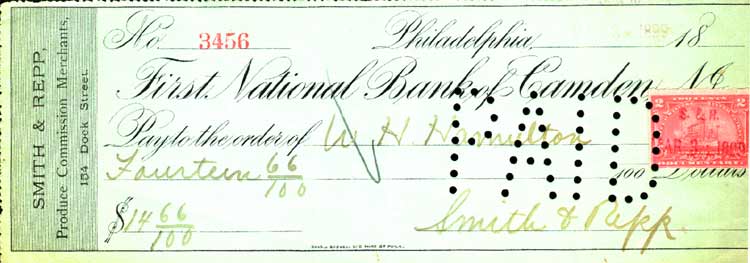 SMITH & REPP,
Produce Commission Merchants,
154 Dock Street.
No. 3456 Philadelphia, 18
First National Bank of Camden, NJ
Pay to the order of W. H. Hamilton
Fourteen 66/100 100 Dollars
$14 66/100 Smith & Repp.
PAID
2 2
TWO CENTS
S. & R.
DOCUMENTARY